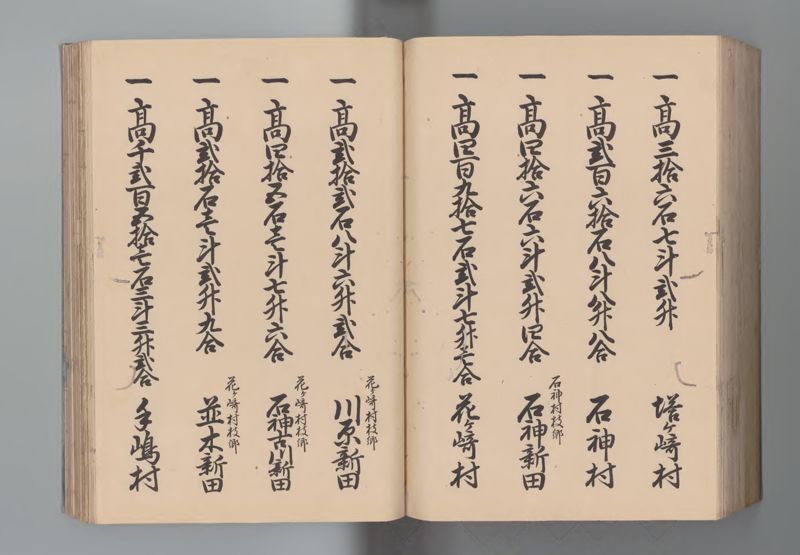 一高三拾六石七斗弐升 塔ヶ崎村
一高弐百六拾石八斗八升八合 石神村
一高四拾六石六斗弐升四合 石神村枝郷 石神新田
一高四百九拾七石弐斗七升壱合 花ヶ崎村
一高弐拾弐石八斗六升弐合 花ヶ崎村枝郷 川原新田
一高四拾五石壱斗七升六合 花ヶ崎村枝郷 石神古川新田
一高弐拾石壱斗弐升九合 花ヶ崎村枝郷 並木新田
一高千弐百五拾壱石三斗三升弐合 手嶋村